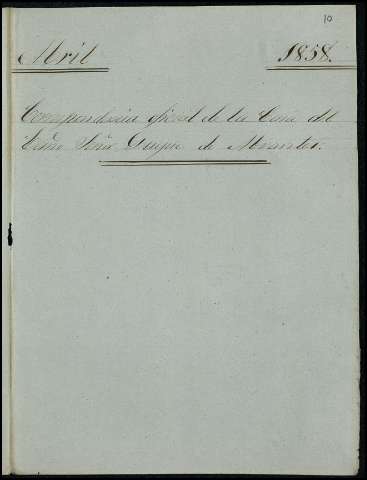 10
Abril 1858.
Correspondencia oficial de la Casa del
Exmo Señor Duque de Abrantes.